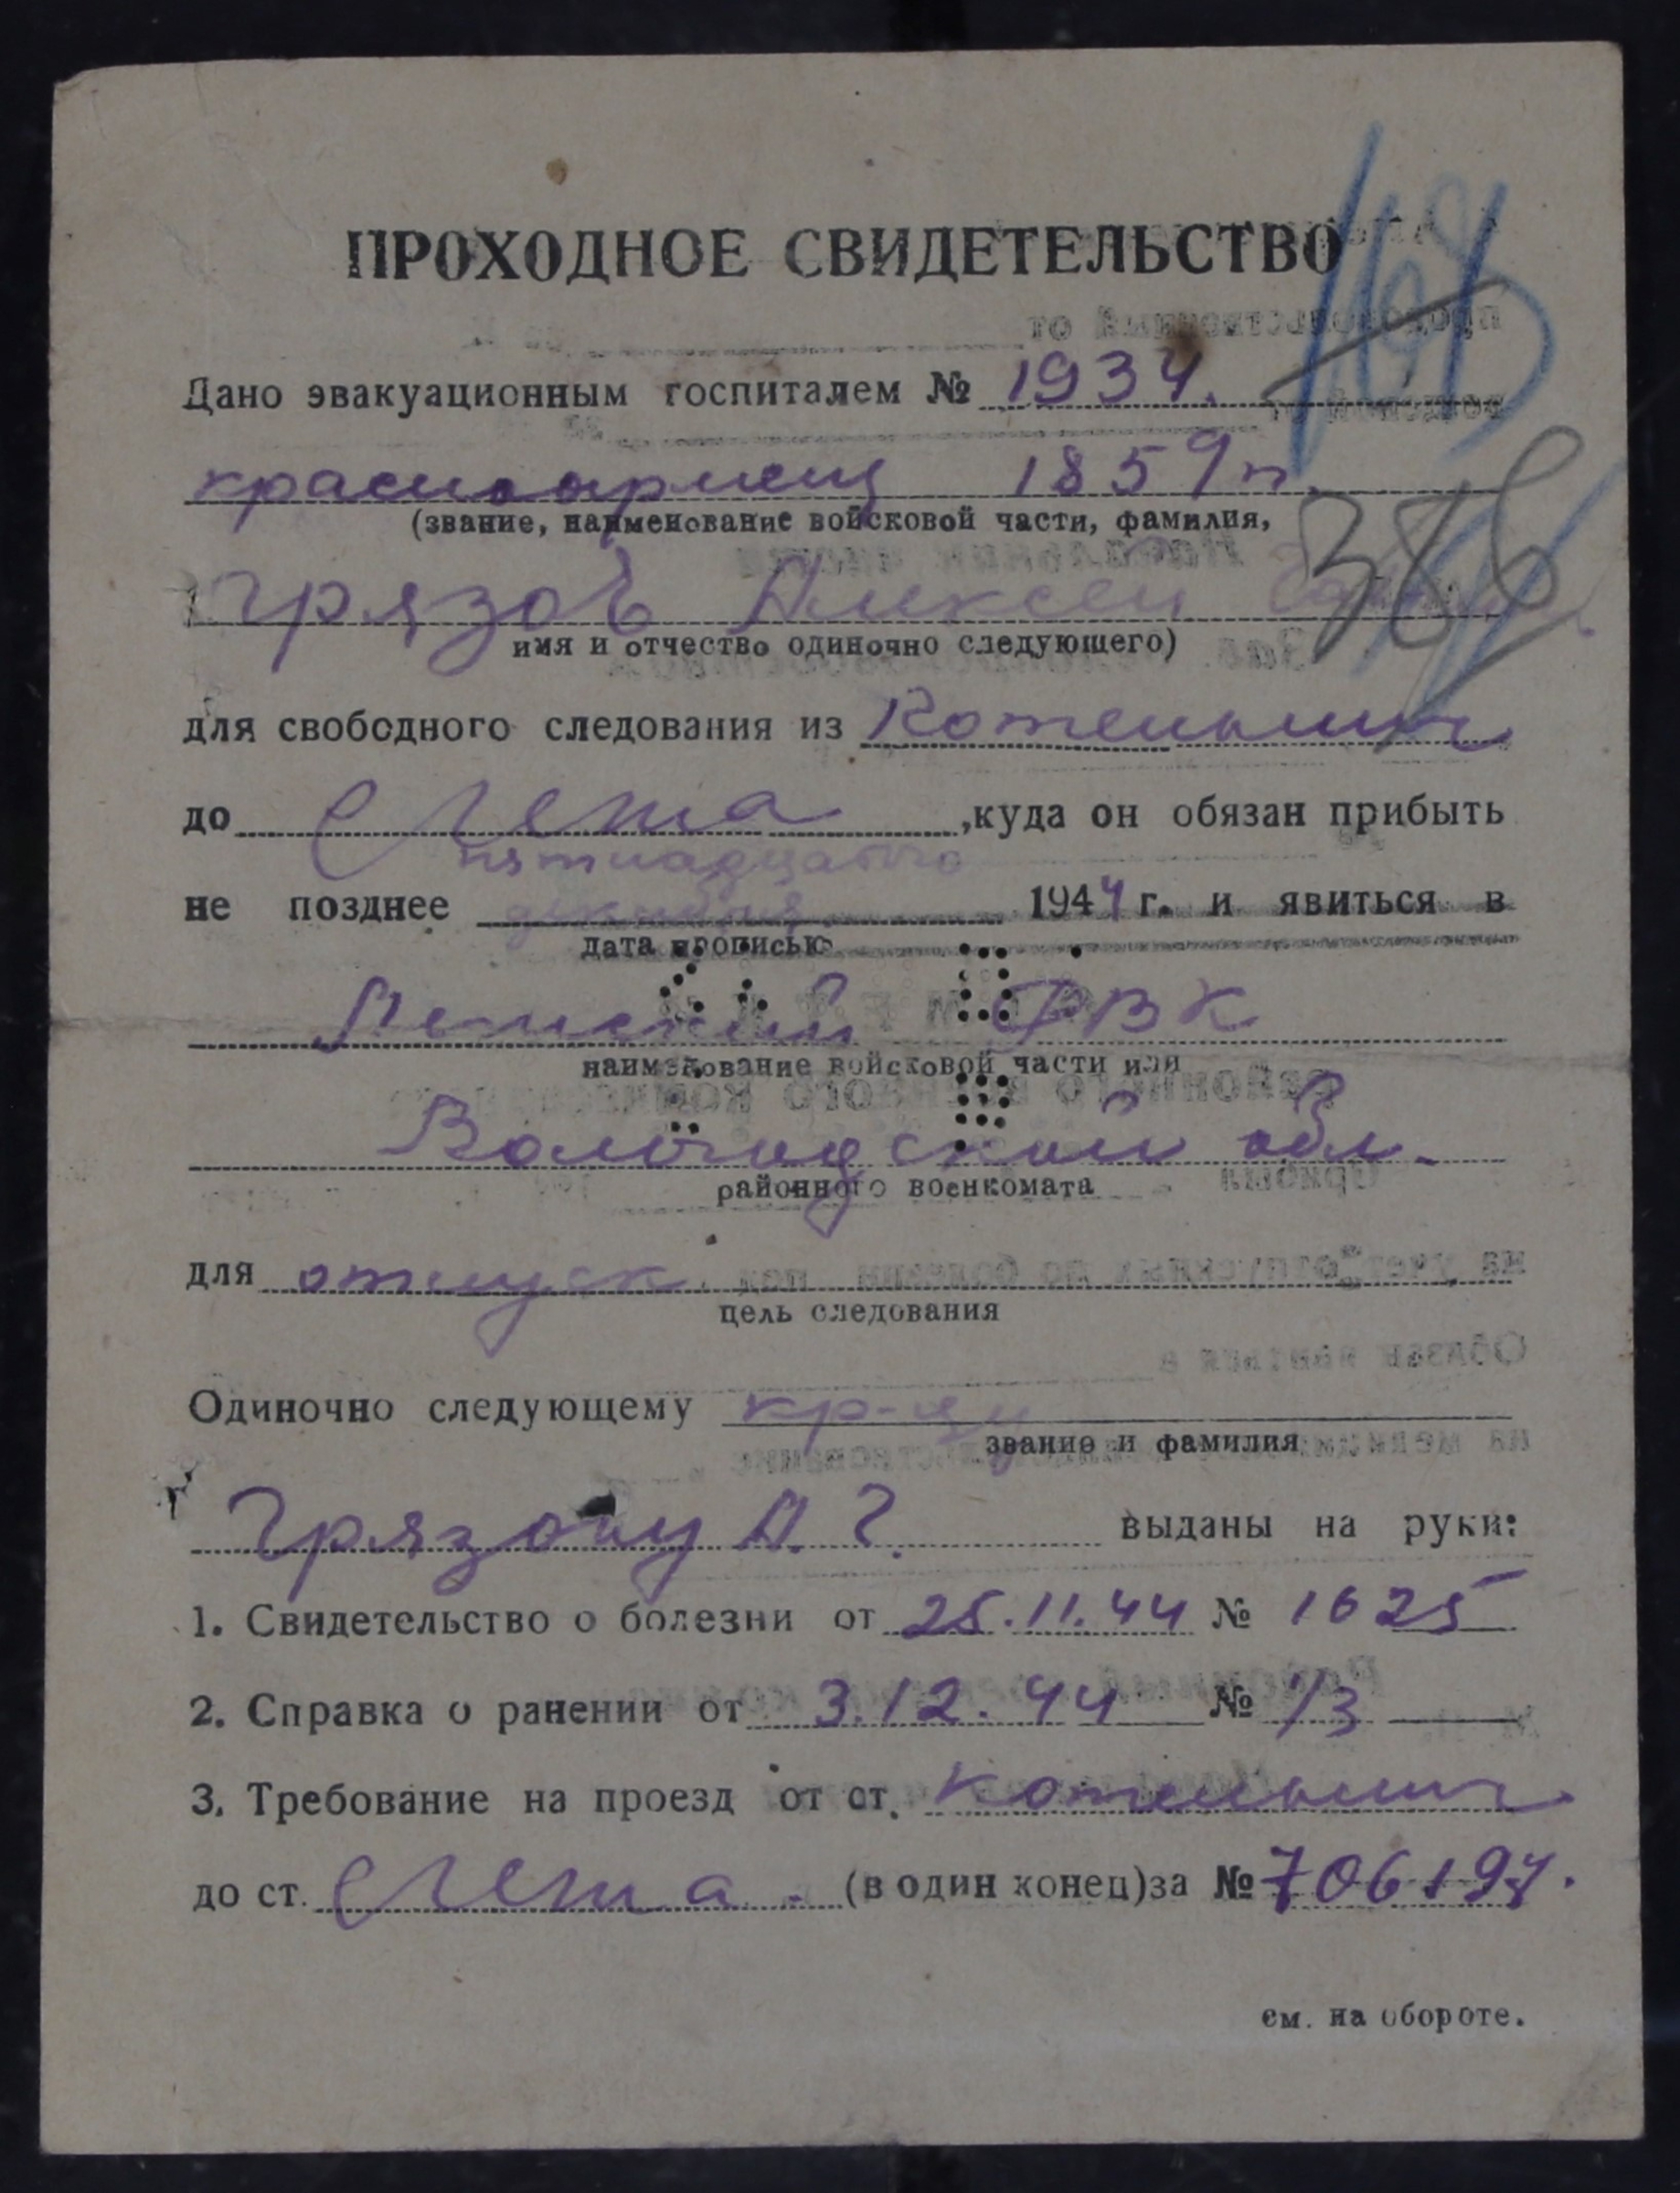 ПРОХОДНОЕ СВИДЕТЕЛЬСТВО
Дано эвакуационным госпиталем № 1934.
красноармеец 1859 п.
(звание, наименование войсковой части, фамилия,
Грязов Алексей
386
имя и отчество одиночно следующего)
для свободного следования из Котельнич
до с Лежа, куда он обязан прибыть
пятнадцатого
не позднее декабря 1944 г. и явиться в
дата прописью
РВК
наименование войсковой части или
Вологодской обл.
районного военкомата
для отпуск.
цель следования
Одиночно следующему кр-цу
звание и фамилия
Грязову А. Г. выданы на руки:
1. Свидетельство о болезни от 25.11.44 № 1625
2. Справка о ранении от 3.12.44 № 1/3
3. Требование на проезд от ст. Котельнич
до ст. Лежа. (в один конец) за № 706194.
см. на обороте.